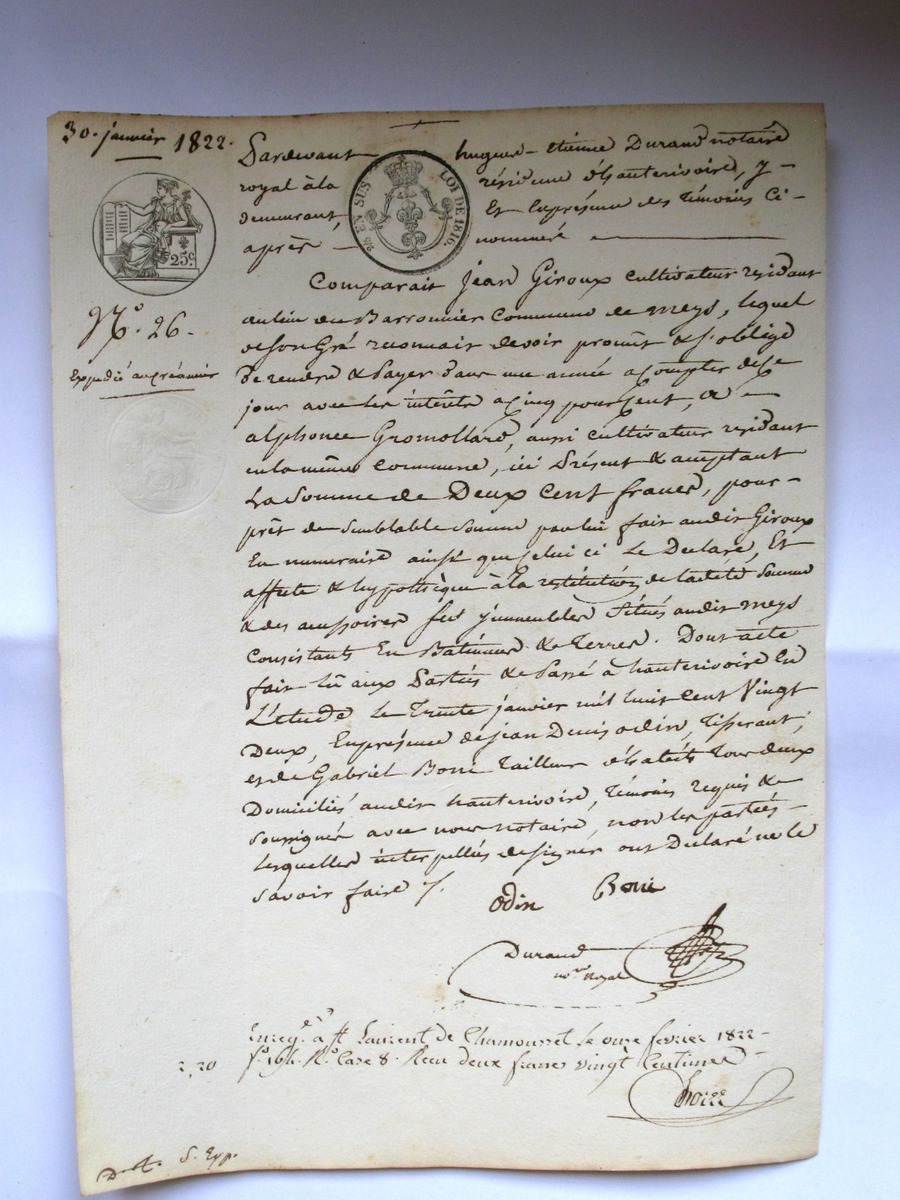 30. janvier 1822.
Pardevant hugues-étienne Durand notaire
royal à la résidence d'hauterivoire, y
demeurant Et En présence des Témoins Ci-
après nommés
EN SUS LOI DE 1816.
25c
N.º 26.
Expedié au créancier
Comparait Jean Giroux cultivateur residant
au lieu du Barronnier Commune de meys, lequel
de son Gré reconnait devoir promet & s'oblige
De rendre & Payer dans une année a Compter de Ce
jour avec les intérêts a Cinq pour Cent, à
alphonce Gromollard, aussi cultivateur residant
en la même Commune, ici Présent & acceptant
La Somme de Deux Cent francs, pour
prêt de Semblable Somme par lui fait audit Giroux
En numeraire ainsi que Celui ci Le Declare, Et
affecte & hypothèque à la restitution de ladite Somme
& des accessoires ses immeubles Situés audit meys
Consistants En Batiments & Terres. Dont acte
fait lû aux Parties & Passé à hauterivoire En
L'étude Le Trente janvier mil huit Cent Vingt
Deux, En présence de jean Denis odin, Tisserant,
et de Gabriel Boni Tailleur d'habits Tous deux
Domiciliés audit hauterivoire, Témoins requis &
Soussignés avec nous notaire, non les parties
Lesquelles interpellées de signer ont Declaré ne le
Savoir faire
odin Boni
Durand
not.re Royal
Enreg.é à St Laurent de Chamousset le onze fevrier 1822
f.º 164 R.º Case 8. Reçu deux francs vingt Centimes
2,20
D. A. S. Exp.